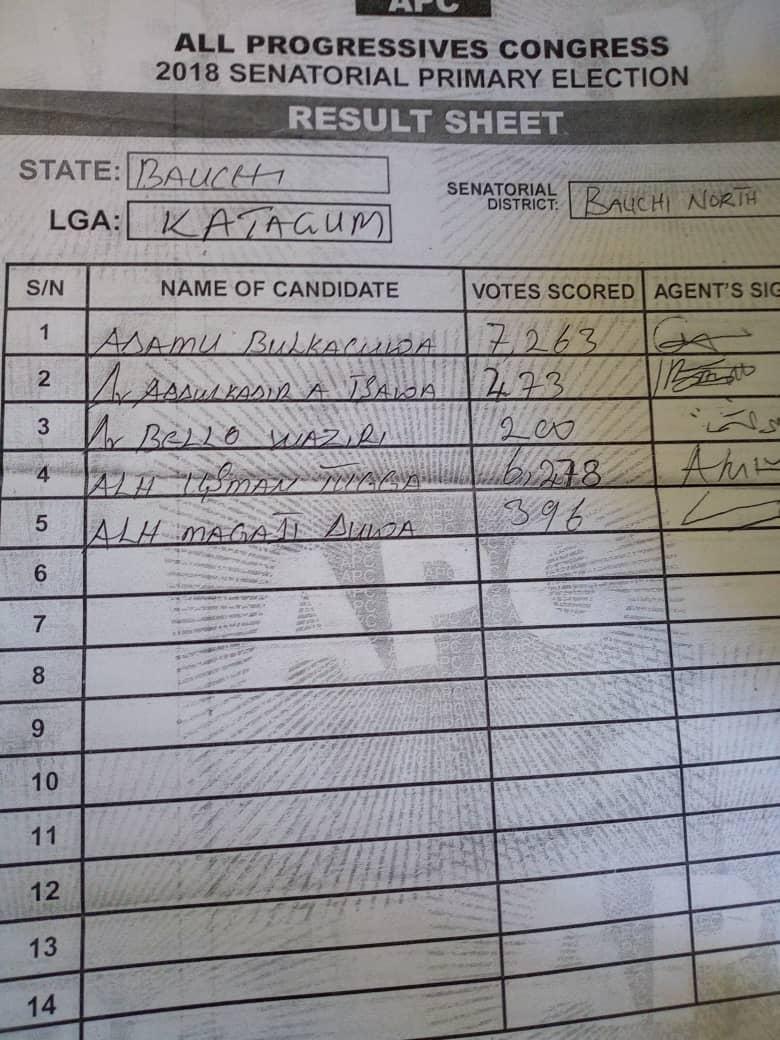 APC
ALL PROGRESSIVES CONGRESS
2018 SENATORIAL PRIMARY ELECTION
RESULT SHEET
STATE: BAUCHI
SENATORIAL DISTRICT: BAUCHI NORTH
LGA: KATAGUM
S/N NAME OF CANDIDATE VOTES SCORED AGENT'S SIG
1 ADAMU BULKACHUWA 7,263
2 ABDULKADIR A 473
3 BELLO WAZIRI 200
4 ALH USMAN 6,278
5 ALH MAGAJI 396
6
7
8
9
10
11
12
13
14